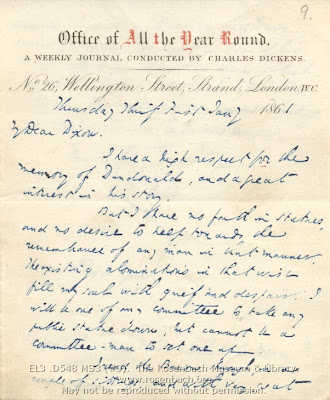 9.
Office of All the Year Round,
A WEEKLY JOURNAL CONDUCTED BY CHARLES DICKENS.
No. 26, Wellington Street, Strand, London, W.C.
Thursday Thirty First Jany 1861
My Dear Dixon.
I have a high respect for the
memory of Dundonald, and a great
interest in his story.
But I have no faith in statues,
and no desire to help towards the
remembrance of any man in that manner.
The existing abominations in that wise
fill my soul with grief and despair. I
will be one of any committee to take any
public statue down, but cannot be a
committee-man to set one up.
EL3 .D548 MS3 The Rosenbach Museum & Library
www.rosenbach.org
May not be reproduced without permission.